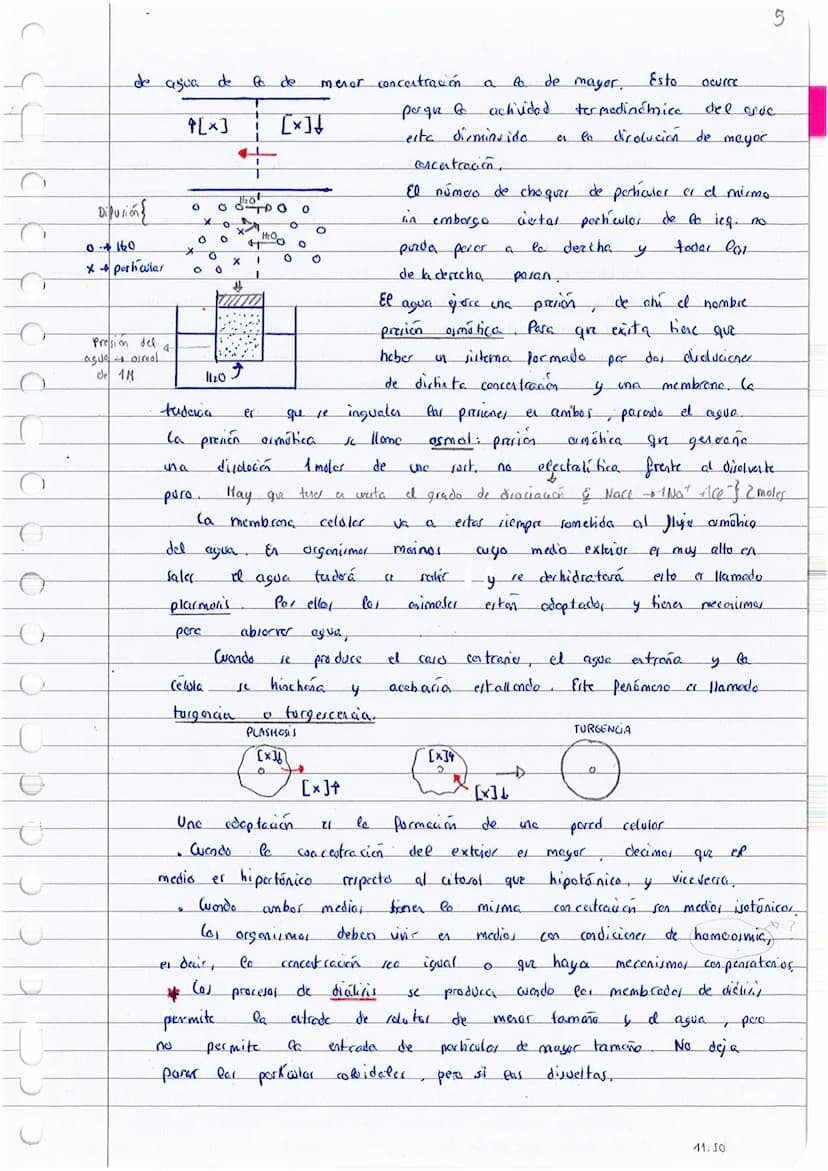 5
de agua de la de menor concentración a la de mayor. Esto ocurre
porque la actividad termodinámica del agua
esta disminuida en la disolución de mayor
concentración.
↑[x] [x]↓
El número de choques de partículas es el mismo
sin embargo ciertas partículas de la izq. no
puedan pasar a la derecha y todas las
de la derecha pasan.
Difusión{
H2O
H2O
o → H2O
x → partículas
El agua ejerce una presión, de ahí el nombre
presión osmótica. Para que exista tiene que
haber un sistema formado por dos disoluciones
de distinta concentración y una membrana. La
Presión del
agua → osmol
de 1M
H2O
tendencia es que se ingualen las presiones en ambos, parando el agua.
La presión osmótica se llama osmol: presión osmótica que generaría
una disolución 1 moles de una sust. no electrolítica frente al disolvente
puro. Hay que tener en cuenta el grado de disociación NaCl → 1Na+ + 1Cl-} 2 moles
La membrana celular va a estar siempre sometida al flujo osmótico
del agua. En organismos marinos cuyo medio exterior es muy alto en
sales el agua tenderá a salir y se deshidratará esto es llamado
plasmosis. Por ellos los animales están adaptados y tienen mecanismos
para absorver agua,
Cuando se produce el caso contrario, el agua entraría y la
célula se hincharía y acabaría estallando. Este fenómeno es llamado
turgencia o turgescencia.
PLASMOSIS TURGENCIA
[x]↓ [x]↑ [x]↑ [x]↓
Una adaptación es la formación de una pared celular
. Cuando la concentración del exterior es mayor, decimos que el
medio es hipertónico respecto al citosol que hipotónico, y viceversa.
. Cuando ambos medios tienen la misma concentración son medios isotónicos.
Los organismos deben vivir en medios con condiciones de homeosmia, ?
es decir, la concentración sea igual o que haya mecanismos compensatorios.
* Los procesos de diálisis se produce cuando las membranas de diálisis
permite la entrada de solutos de menor tamaño y el agua, pero
no permite la entrada de partículas de mayor tamaño. No deja
pasar las partículas coloidales, pero si las disueltas.
11:50